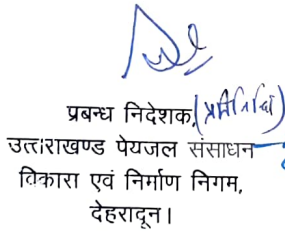 प्रबन्ध निदेशक, (प्रतिनिधि)
उत्तराखण्ड पेयजल संसाधन
विकास एवं निर्माण निगम,
देहरादून।